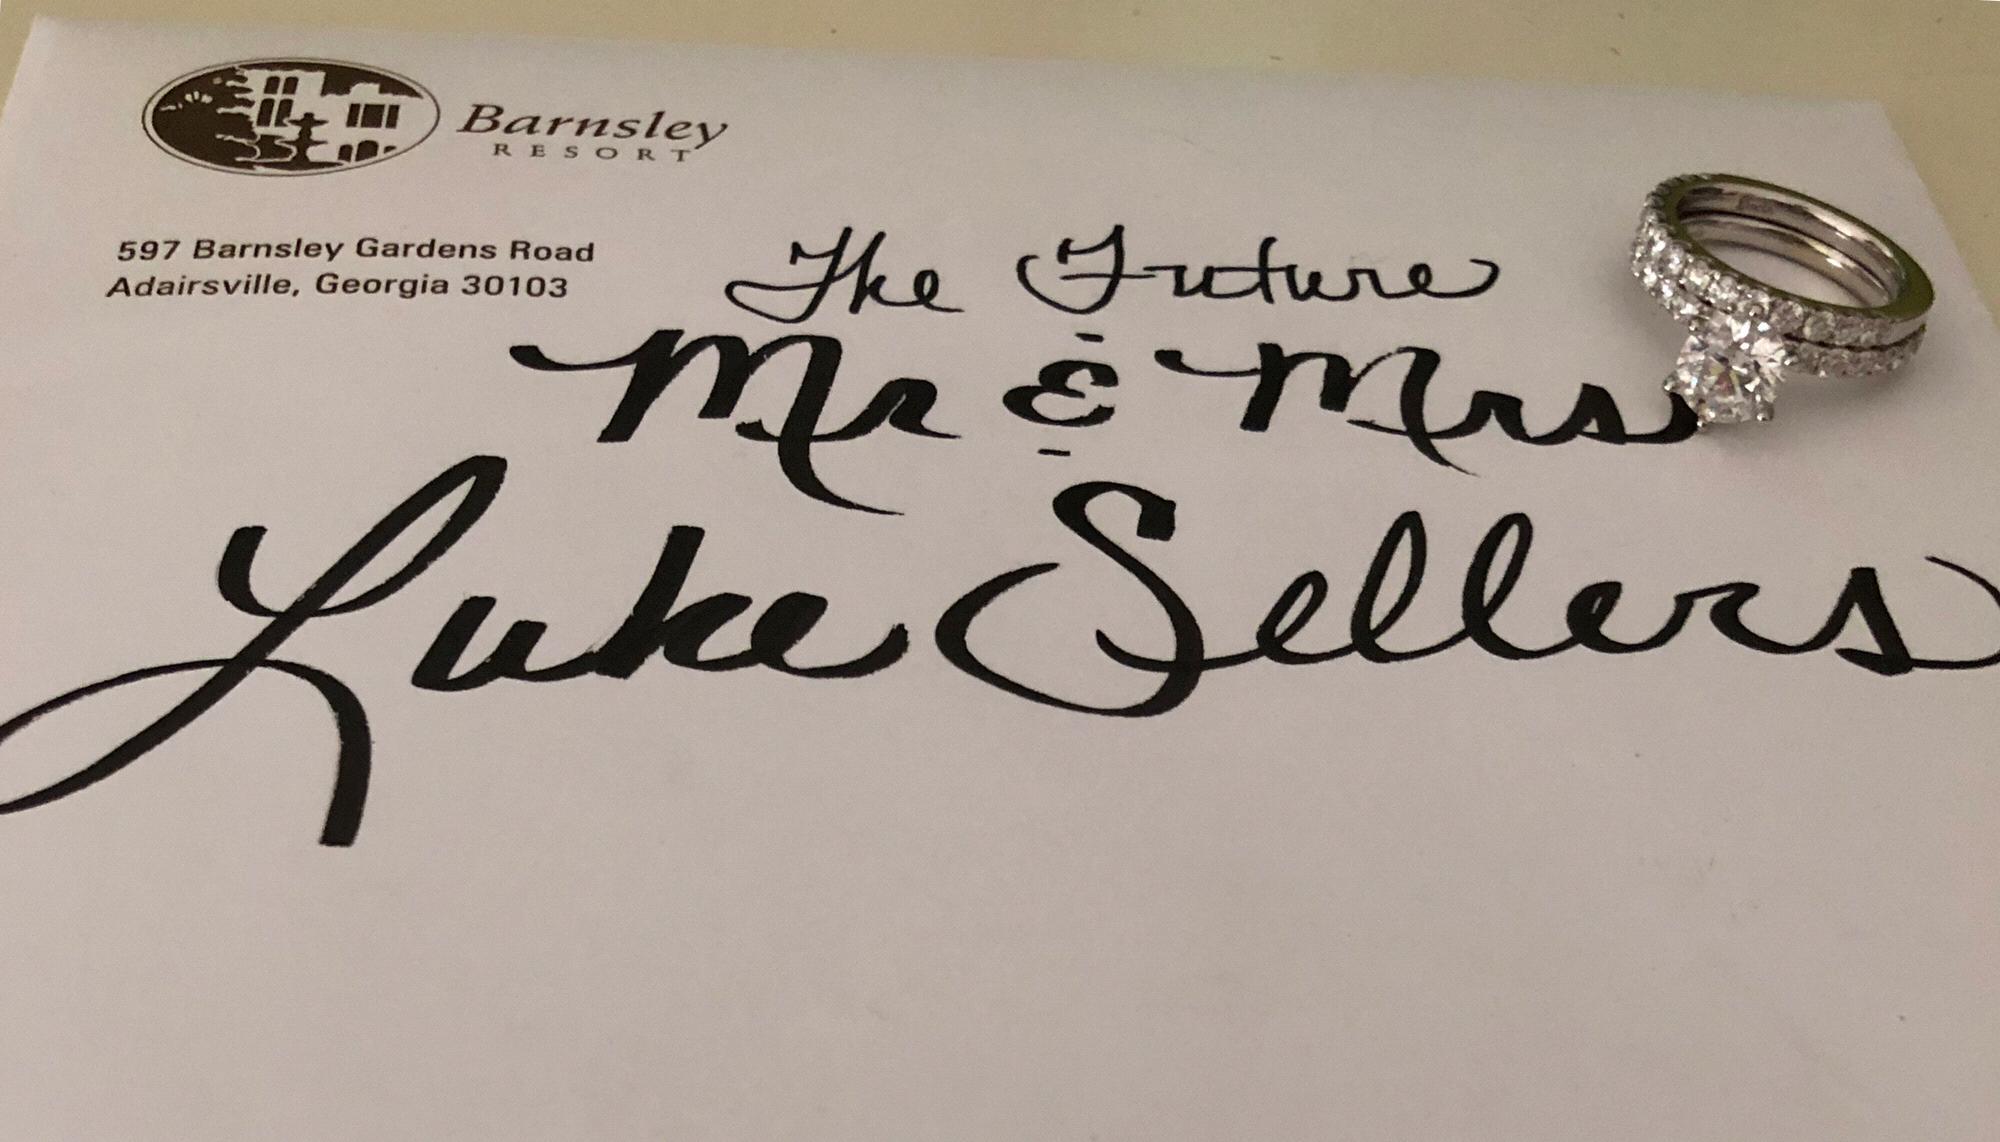 Barnsley
RESORT
597 Barnsley Gardens Road
Adairsville, Georgia 30103
The Future
Mr & Mrs
Luke Sellers